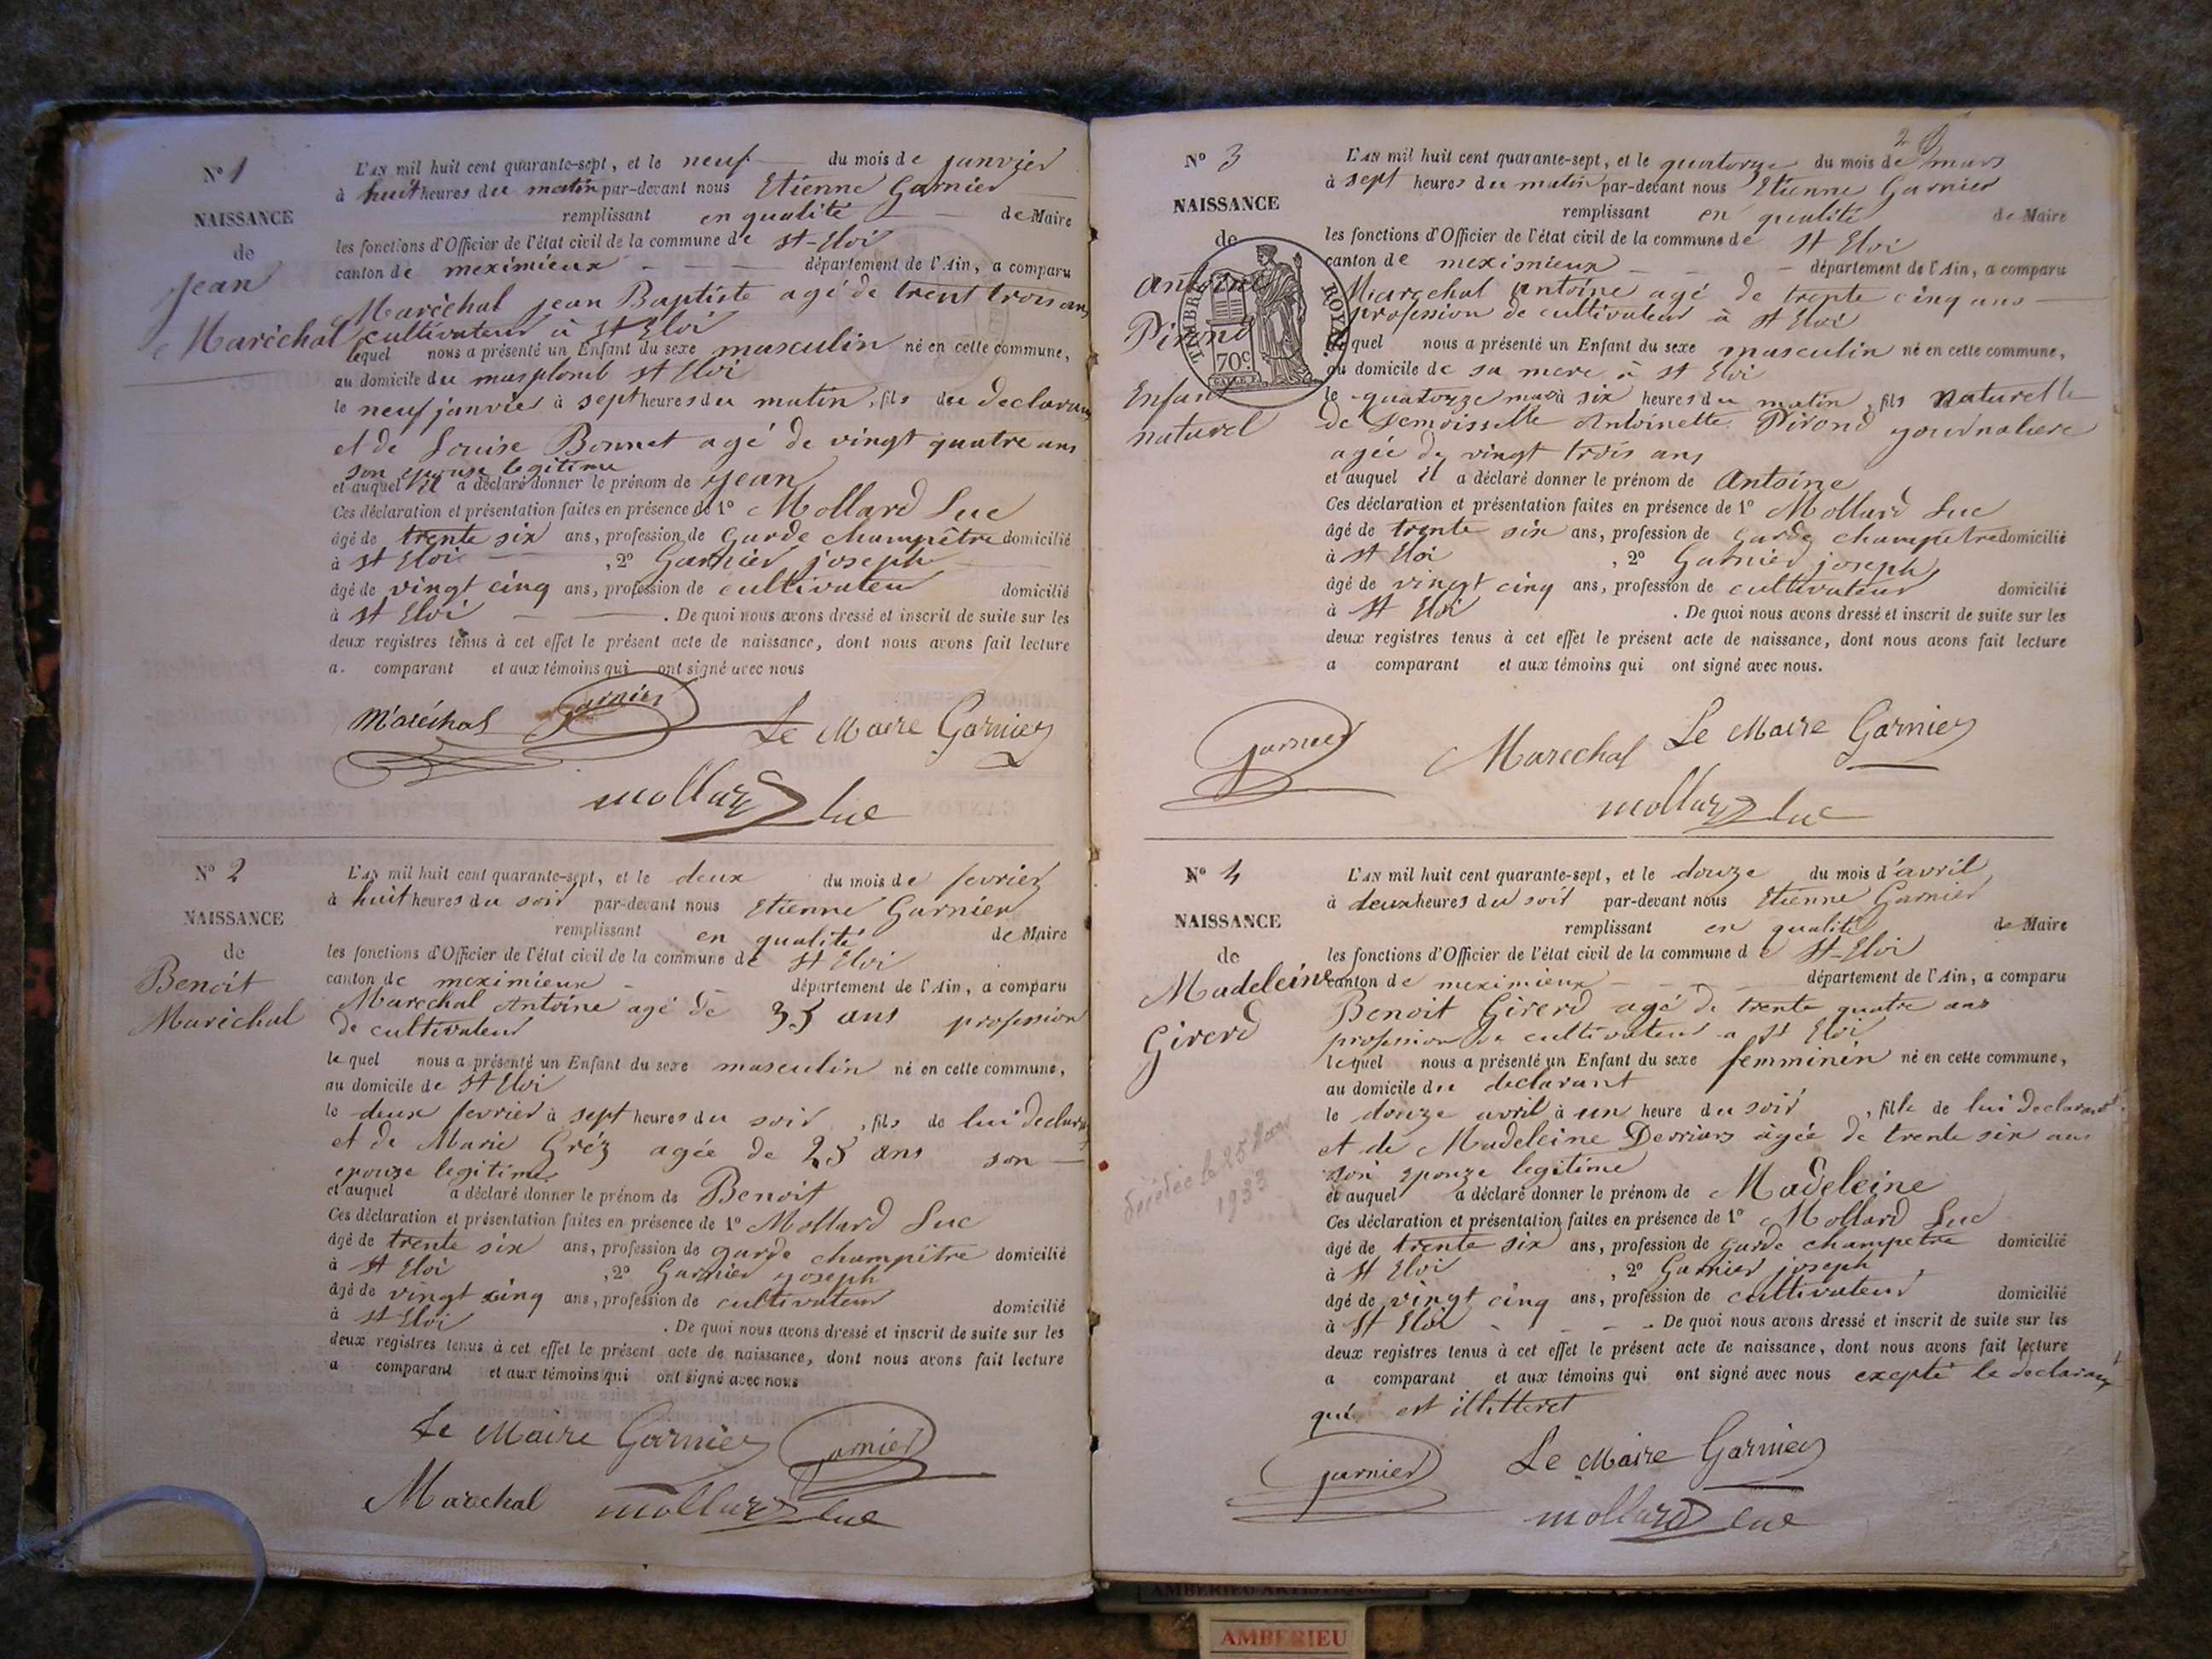 N° 1
NAISSANCE
de
Jean
Maréchal
L'AN mil huit cent quarante-sept, et le neuf du mois de janvier
à huit heures du matin par-devant nous Etienne Garnier
remplissant en qualité de Maire
les fonctions d'Officier de l'état civil de la commune de St-Eloi
canton de meximieux département de l'Ain, a comparu
Maréchal jean Baptiste agé de trent trois ans
cultivateur à St Eloi
lequel nous a présenté un Enfant du sexe masculin né en cette commune,
au domicile du mas plomb St Eloi
le neuf janvier à sept heures du matin, fils du declarant
et de Louise Bonnet agé de vingt quatre ans
son epouse legitime
et auquel il a déclaré donner le prénom de jean
Ces déclaration et présentation faites en présence de 1° Mollard Luc
âgé de trente six ans, profession de Garde champêtre domicilié
à St Eloi , 2° Garnier joseph
âgé de vingt cinq ans, profession de cultivateur domicilié
à St Eloi . De quoi nous avons dressé et inscrit de suite sur les
deux registres tenus à cet effet le présent acte de naissance, dont nous avons fait lecture
a. comparant et aux témoins qui ont signé avec nous
Maréchal Garnier Le Maire Garnier
mollard luc
N° 2
NAISSANCE
de
Benoit
Maréchal
L'AN mil huit cent quarante-sept, et le deux du mois de fevrier
à huit heures du soir par-devant nous Etienne Garnier
remplissant en qualité de Maire
les fonctions d'Officier de l'état civil de la commune de St Eloi
canton de meximieux département de l'Ain, a comparu
Marechal Antoine agé de 35 ans profession
de cultivateur
le quel nous a présenté un Enfant du sexe masculin né en cette commune,
au domicile de St Eloi
le deux fevrier à sept heures du soir, fils de lui declarant
et de Marie Gréz agée de 25 ans son
epouze legitime
et auquel a déclaré donner le prénom de Benoit
Ces déclaration et présentation faites en présence de 1° Mollard Luc
âgé de trente six ans, profession de garde champêtre domicilié
à St Eloi , 2° Garnier joseph
âgé de vingt cinq ans, profession de cultivateur domicilié
à St Eloi . De quoi nous avons dressé et inscrit de suite sur les
deux registres tenus à cet effet le présent acte de naissance, dont nous avons fait lecture
a comparant et aux témoins qui ont signé avec nous
Le Maire Garnier Garnier
Marechal mollard luc
2
N° 3
NAISSANCE
de
Antoine
Pirond
Enfant
naturel
TIMBRE ROYAL
70c
L'AN mil huit cent quarante-sept, et le quatorze du mois de mars
à sept heures du matin par-devant nous Etienne Garnier
remplissant en qualité de Maire
les fonctions d'Officier de l'état civil de la commune de St Eloi
canton de meximieux département de l'Ain, a comparu
Marechal antoine agé de trente cinq ans
profession de cultivateur à St Eloi
lequel nous a présenté un Enfant du sexe masculin né en cette commune,
au domicile de sa mere à St Eloi
le quatorze mars à six heures du matin, fils naturelle
de Demoisselle Antoinette Pirond journaliere
agée de vingt trois ans
et auquel il a déclaré donner le prénom de Antoine
Ces déclaration et présentation faites en présence de 1° Mollard Luc
âgé de trente six ans, profession de Garde champetre domicilié
à St Eloi , 2° Garnier joseph
âgé de vingt cinq ans, profession de cultivateur domicilié
à St Eloi . De quoi nous avons dressé et inscrit de suite sur les
deux registres tenus à cet effet le présent acte de naissance, dont nous avons fait lecture
a comparant et aux témoins qui ont signé avec nous.
Garnier Marechal Le Maire Garnier
mollard luc
N° 4
NAISSANCE
de
Madeleine
Girerd
décédée le 25 Mars
1933
L'AN mil huit cent quarante-sept, et le douze du mois d'avril
à deux heures du soir par-devant nous Etienne Garnier
remplissant en qualité de Maire
les fonctions d'Officier de l'état civil de la commune de St-Eloi
canton de meximieux département de l'Ain, a comparu
Benoit Girerd agé de trente quatre ans
profession de cultivateur a St Eloi
lequel nous a présenté un Enfant du sexe femminin né en cette commune,
au domicile du declarant
le douze avril à un heure du soir, fille de lui declarant
et de Madeleine âgée de trente six ans
son epouze legitime
et auquel a déclaré donner le prénom de Madeleine
Ces déclaration et présentation faites en présence de 1° Mollard Luc
âgé de trente six ans, profession de Garde champetre domicilié
à St Eloi , 2° Garnier joseph
âgé de vingt cinq ans, profession de cultivateur domicilié
à St Eloi . De quoi nous avons dressé et inscrit de suite sur les
deux registres tenus à cet effet le présent acte de naissance, dont nous avons fait lecture
a comparant et aux témoins qui ont signé avec nous excepté le declarant
qui est illitteret
Garnier Le Maire Garnier
mollard luc
AMBERIEU